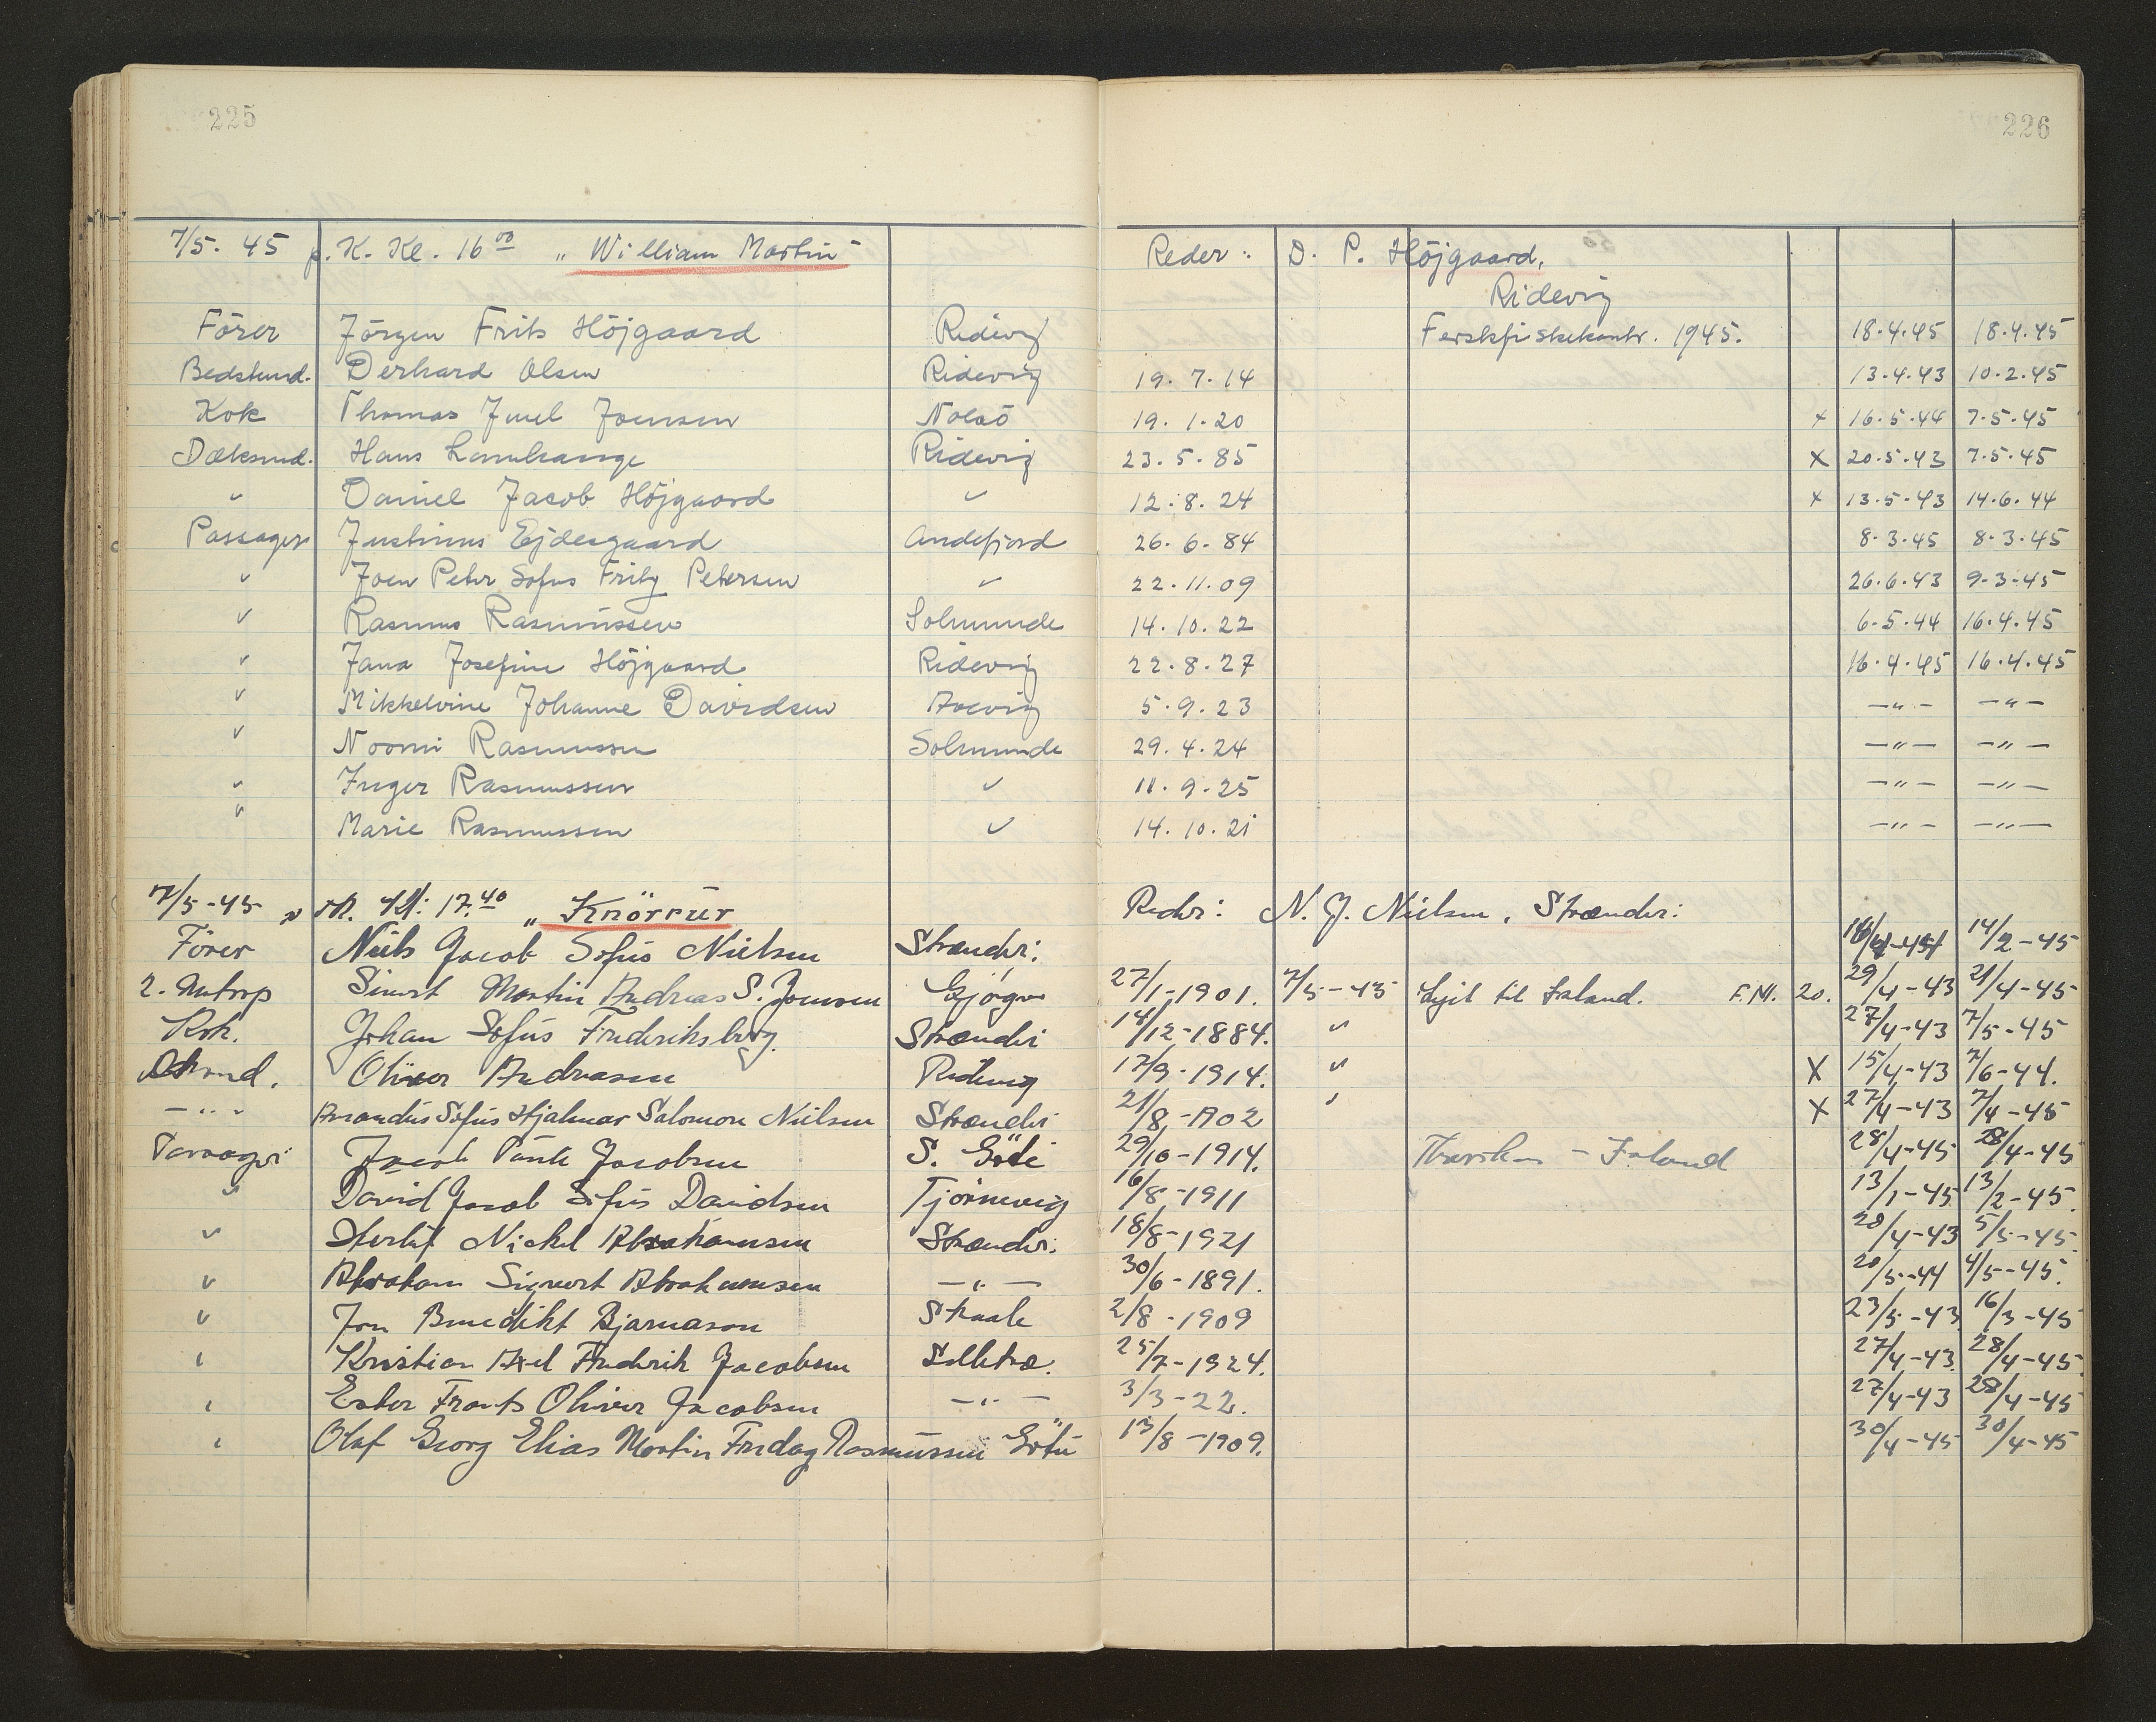 225
226
7/5. 45 p. K. Kl. 16 00 „William Martin" Reder: D. P. Höjgaard,
Ridevig
Förer Jörgen Frits Höjgaard Ridevig Ferskfiskekontr. 1945. 18.4.45 18.4.45
Bedstemd. Derhard Olsen Ridevig 19. 7. 14 13.4.43 10.2.45
Kok Thomas Juul Joensen Nolsö 19. 1. 20 x 16.5.44 7.5.45
Dæksmd. Hans Lamhauge Ridevig 23. 5. 85 x 20.5.43 7.5.45
" Daniel Jacob Höjgaard " 12. 8. 24 x 13.5.43 14.6.44
Passager Justinus Ejdesgaard Andefjord 26. 6. 84 8.3.45 8.3.45
" Joen Peter Sofus Fritz Petersen " 22. 11. 09 26.6.43 9.3.45
" Rasmus Rasmussen Solmunde 14. 10. 22 6.5.44 16.4.45
" Jana Josefine Höjgaard Ridevig 22. 8. 27 16.4.45 16.4.45
" Mikkelvine Johanne Davidsen 5. 9. 23 —"— —"—
" Noomi Rasmussen Solmunde 29. 4. 24 —"— —"—
" Inger Rasmussen " 11. 9. 25 —"— —"—
" Marie Rasmussen " 14. 10. 21 —"— —"—
7/5-45 Kl: 17.40 „Knörrur Reder: N. J. Nielsen, Strænder:
Förer Niels Jacob Sofus Nielsen Strænder: 14/2-45
2. Sivert Martin Andreas S. Joensen Gjógv 27/1-1901. 7/5-45 Lejet til Island. F.M. 20. 29/4-43 21/4-45
Kok. Johan Sofus Frederiksberg. Strænder 14/12-1884. " 27/4-43 7/5-45
Oliver Andreasen Ridevig 17/9-1914. " X 15/4-43 7/6-44.
—"— Amandus Sofus Hjalmar Salomon Nielsen Strænder 21/8-1902 " X 27/4-43 7/4-45
Passager Jacob Jacobsen S. Göte 29/10-1914. Island 28/4-45 28/4-45
" David Jacob Sofus Davidsen Tjörnevig 16/8-1911 13/1-45 13/2-45.
" Herluf Nickel Abrahamsen Strænder. 18/8-1921 20/4-43 5/5-45.
" Abraham Sigvert Abrahamsen —"— 30/6-1891. 20/5-44 4/5-45.
" Jon Benedikt Bjarnason Skaale 2/8-1909 23/5-43 16/3-45
" Kristian Axel Frederik Jacobsen Selletræ. 25/7-1924. 27/4-43. 28/4-45
" Ester Frants Oliver Jacobsen —"— 3/3-22. 27/4-43 28/4-45
" Olaf Georg Elias Martin Fredag Rasmussen Götu 13/8-1909. 30/4-45 30/4-45